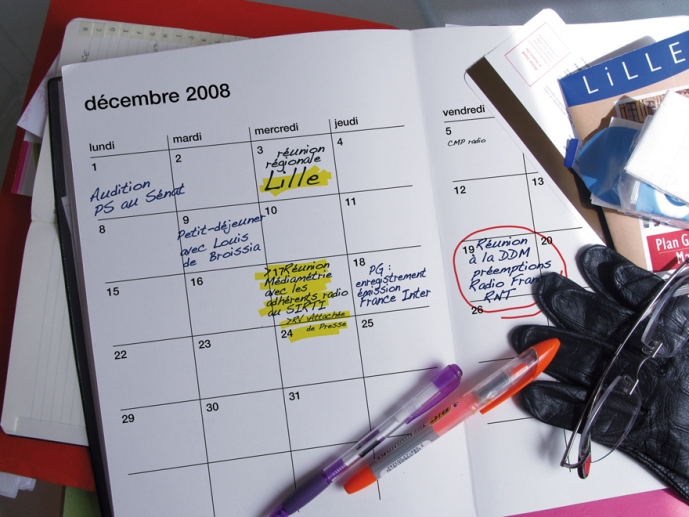 décembre 2008
lundi
mardi
mercredi
jeudi
vendredi
1
Audition
PS au Sénat
2
3
réunion
régionale
Lille
4
5
CMP radio
8
9
Petit-déjeuner
avec Louis
de Broissia
10
11
12
13
15
16
>17 Réunion
Médiamétrie
avec les
adhérents radio
au SIRTI
>RV Attachée
de Presse
18
PG :
enregistrement
émission
France Inter
19
Réunion
à la DDM
préemptions
Radio Fran
RNT
20
22
23
24
25
26
29
30
31
LiLLE
Plan G
Ma